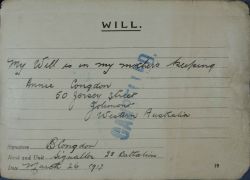 WILL.
My Will is in my mothers keeping
Annie Congdon
50 Jersey Street
Jolimont
Western Australia
CANCELLED.
Signature B Congdon
Rank and Unit Signaller 28 Battalion
Date March 26 1917 19